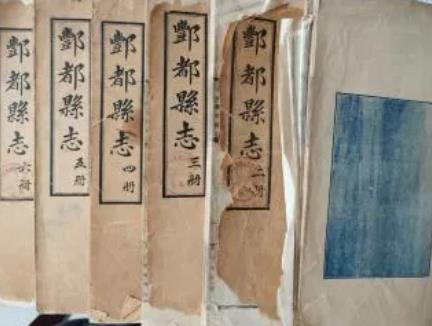 酆都縣志 二冊
酆都縣志 三冊
酆都縣志 四冊
酆都縣志 五冊
酆都縣志 六冊